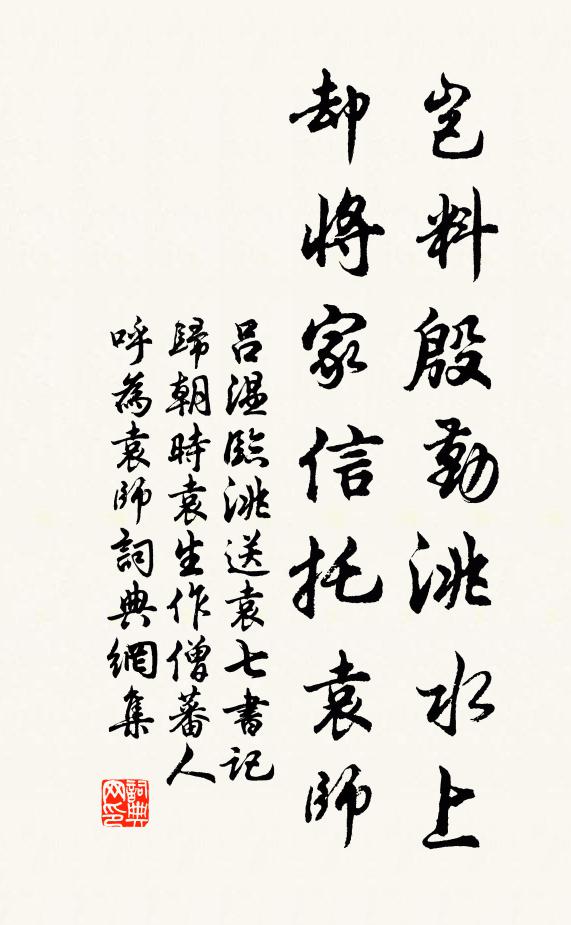 豈料殷勤洮水上
却將家信托袁師
吕溫臨洮送袁七書記
歸朝時袁生作僧蕃人
呼為袁師詞典網集
詞典网印